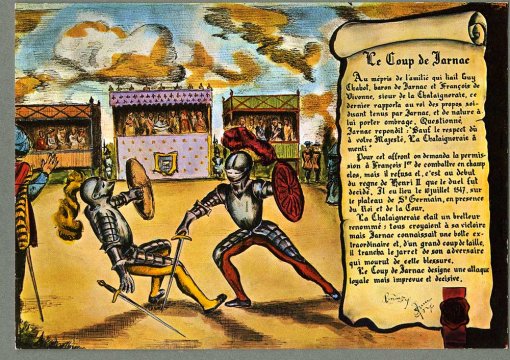 Le Coup de Jarnac
Au mépris de l'amitié qui liait Guy
Chabot, baron de Jarnac et François de
Vivonne, sieur de la Chataigneraie, ce
dernier rapporta au roi des propos soi-
disant tenus par Jarnac, et de nature à
lui porter ombrage. Questionné
Jarnac repondit : Sauf le respect dû
à votre Majesté, La Chataigneraie à
menti
Pour cet affront on demanda la permis-
sion à François 1er de combattre en champ
clos, mais il refusa et, c'est au début
du regne de Henri II que le duel fut
decidé. Il eu lieu le 10 juillet 1547, sur
le plateau de St Germain, en presence
du Roi et de la Cour.
La Chataigneraie était un bretteur
renommé : tous croyaient à sa victoire
mais Jarnac connaissait une botte ex-
traordinaire et, d'un grand coup de taille,
il trancha le jarret de son adversaire
qui mourut de cette blessure.
Le Coup de Jarnac designe une attaque
loyale mais imprevue et decisive.